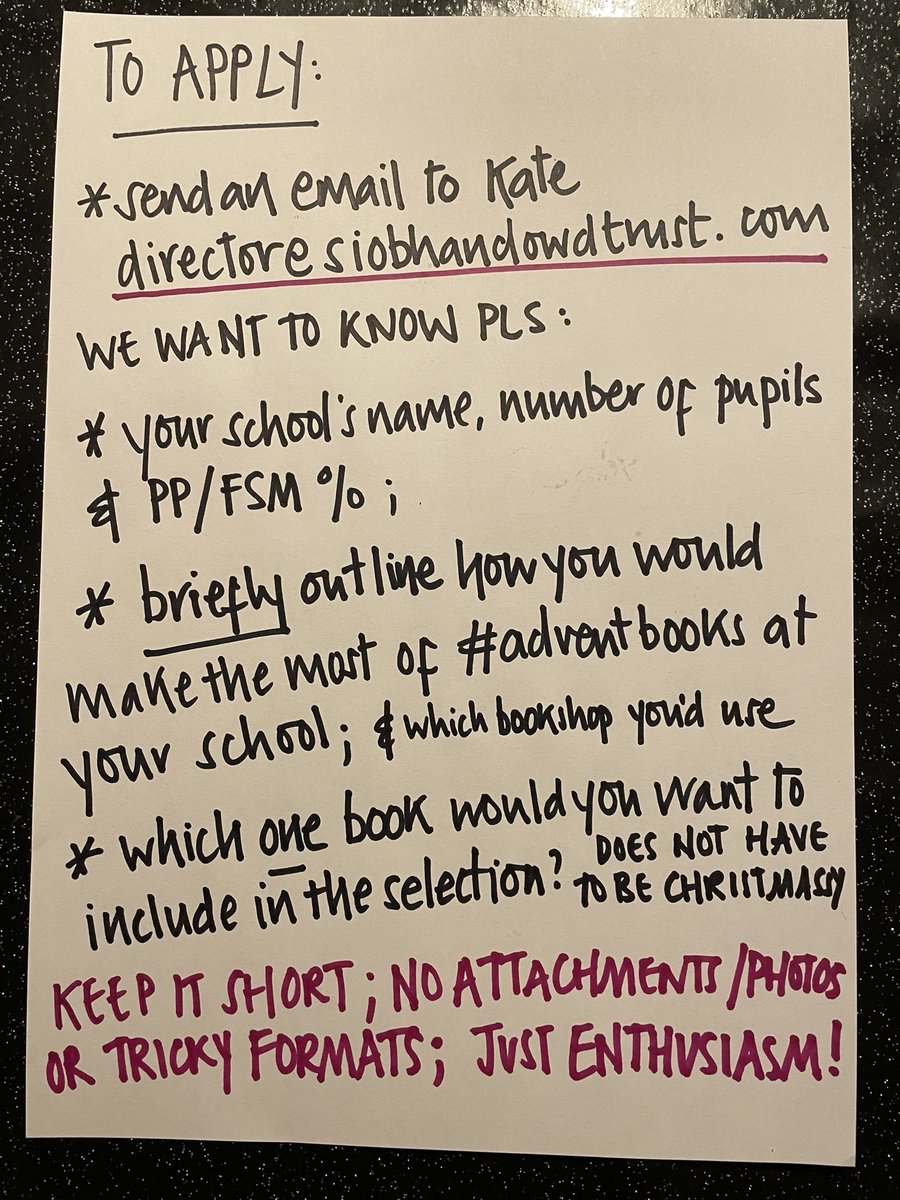 TO APPLY:
* send an email to Kate
director@siobhandowdtrust.com
WE WANT TO KNOW PLS:
* your school's name, number of pupils
& PP/FSM %;
* briefly outline how you would
make the most of #adventbooks at
your school; & which bookshop you'd use
* which one book would you want to
include in the selection? DOES NOT HAVE
TO BE CHRISTMASSY
KEEP IT SHORT; NO ATTACHMENTS/PHOTOS
OR TRICKY FORMATS; JUST ENTHUSIASM!